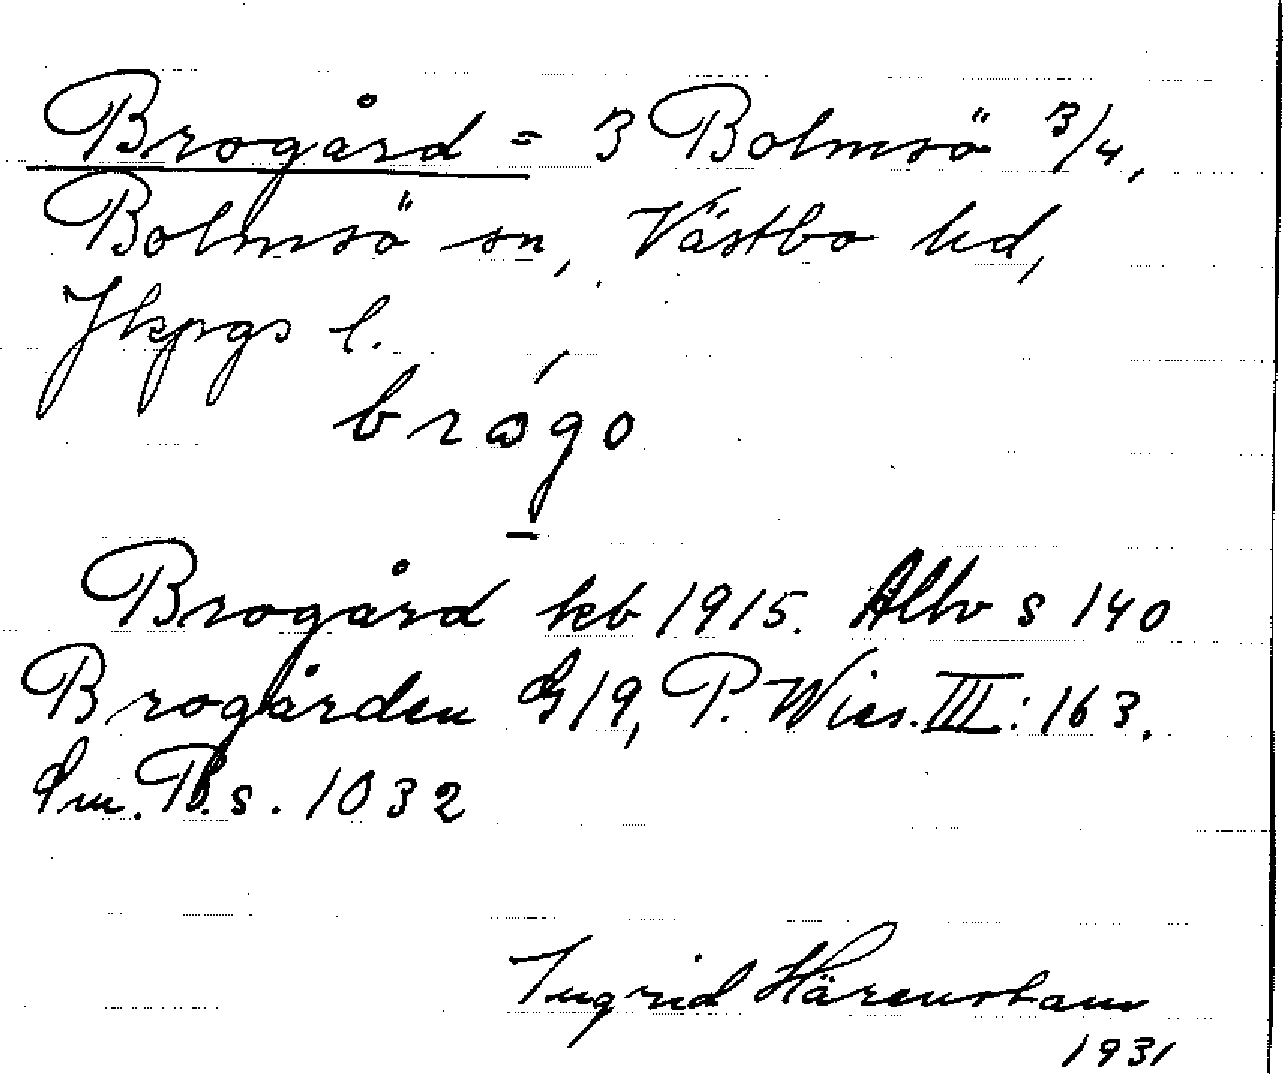 Brogård = 3 Bolmsö 3/4,
Bolmsö sn, Västbo hd,
Jkpgs l.
brågo
Brogård kb 1915. s 140
Brogården G 19, P. Wies. III: 163.
s. 1032
Ingrid Härenstam
1931